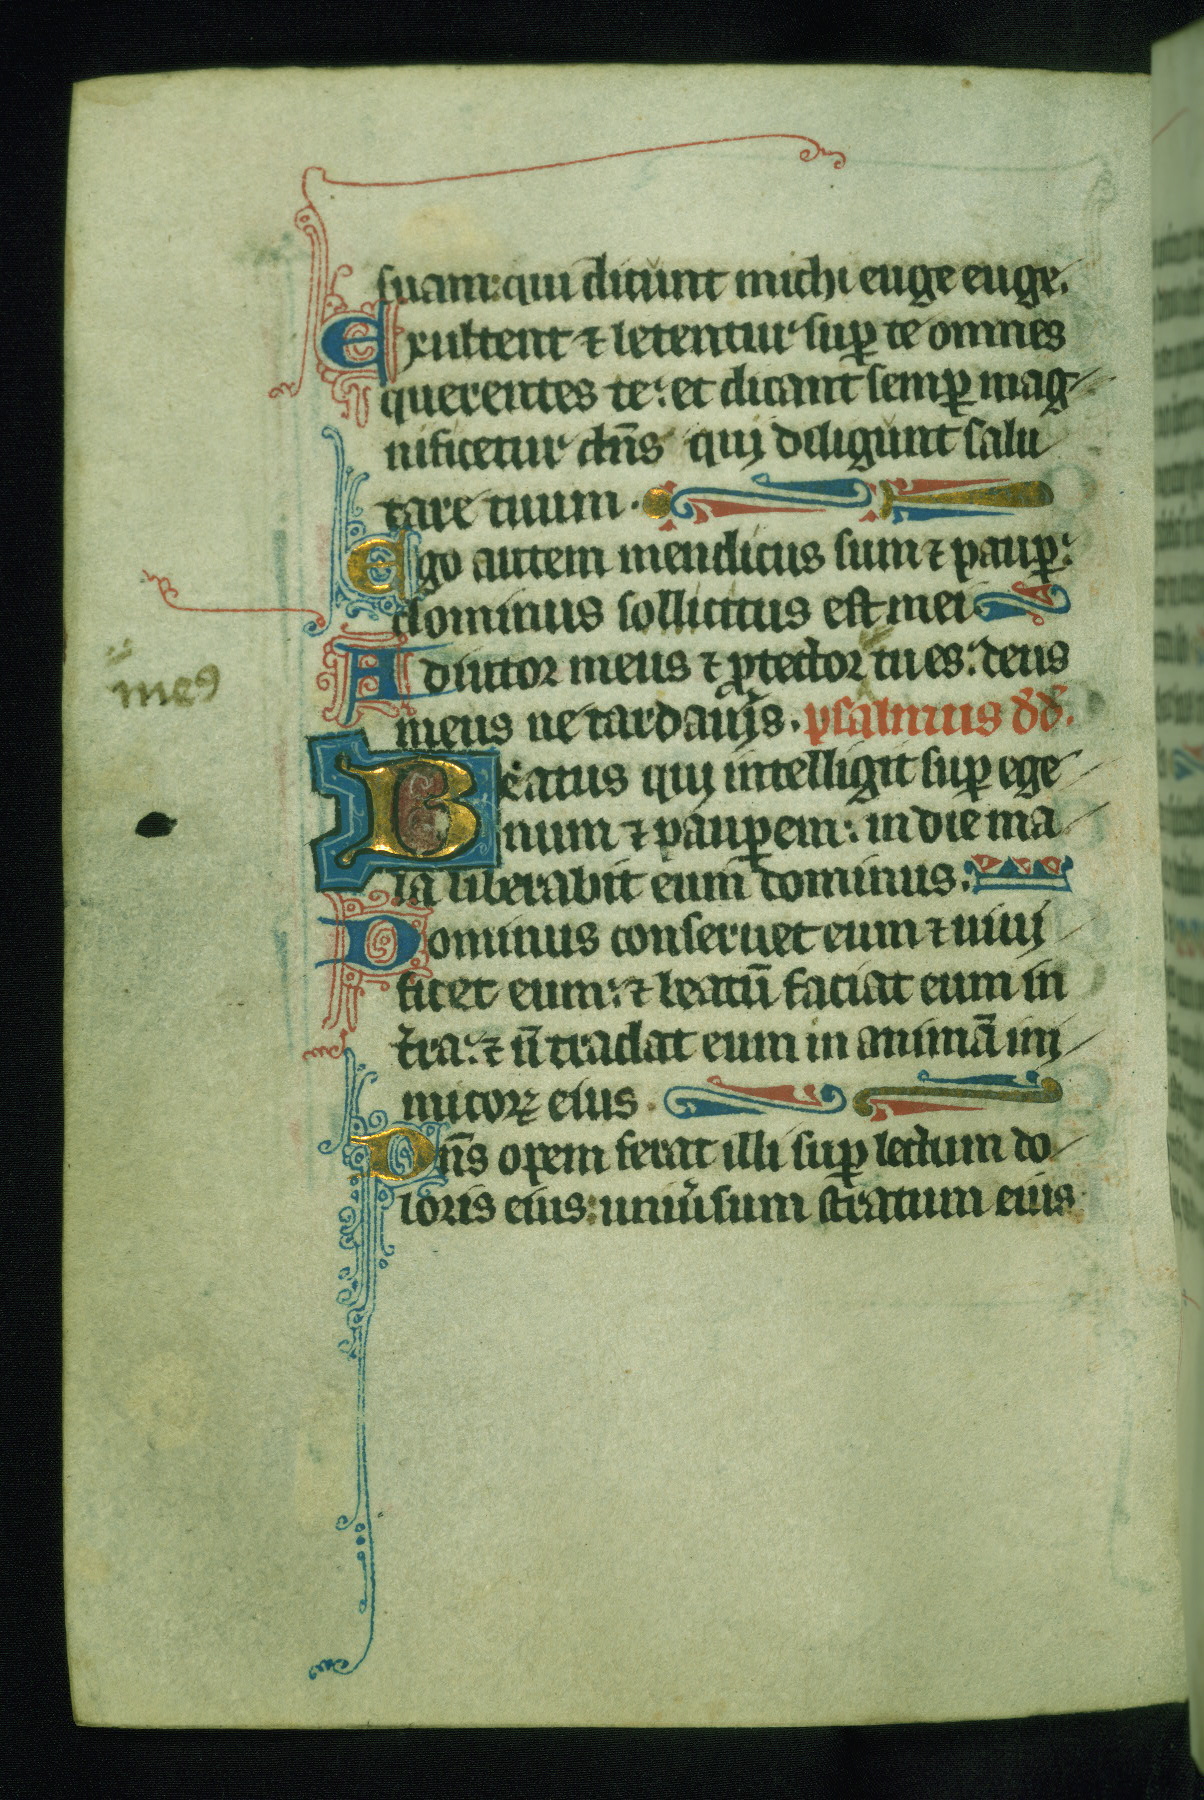 suam: qui dicunt michi euge euge.
Exultent ⁊ letentur sup̲ te omnes
querentes te: et dicant semp̲ mag
nificetur dn̄s qui diligunt salu
tare tuum.
Ego autem mendicus sum ⁊ paup̲:
dominus sollicitus est mei
Adiutor meus ⁊ p̲tector tu es: deus
meus ne tardaueris. psalmus dd.
Beatus qui intelligit sup̲ ege
num ⁊ paup̲em: in die ma
la liberabit eum dominus:
Dominus conseruet eum ⁊ uiui
ficet eum: ⁊ beatū faciat eum in
t̄ra: ⁊ n̄ tradat eum in animā ini
micoꝝ eius.
Dn̄s opem ferat illi sup̲ lectum do
loris eius: uniu̾sum stratum eius
meꝯ